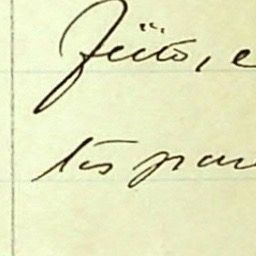 feito, e
tos par